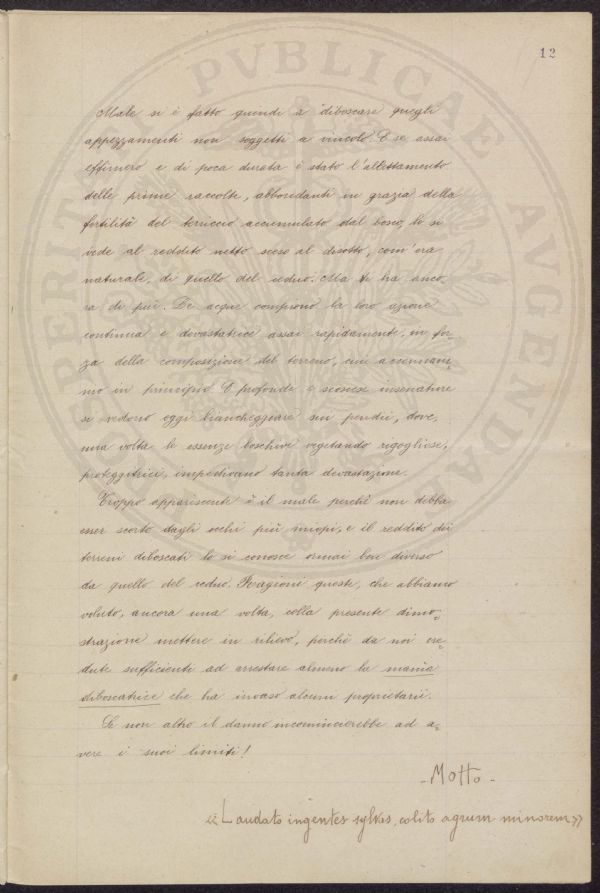 12
PVBLICAE AVGENDAE
Male si è fatto quindi a diboscare quegli
appezzamenti non soggetti a vincolo. E se assai
effimero e di poca durata è stato l'allettamento
delle prime raccolte, abbondanti in grazia della
fertilità del terriccio accumulato dal bosco, lo si
vede al reddito netto sceso al disotto, com'era
naturale, di quello del ceduo. Ma vi ha anco-
ra di più. Le acque compiono la loro azione
continua e devastatrice assai rapidamente, in for-
za della composizione del terreno, cui accennam-
mo in principio. E profonde e scoscese insenature
si vedono oggi biancheggiare sui pendii, dove,
una volta le essenze boschive vegetando rigogliose,
proteggitrici, impedivano tanta devastazione.
Troppo appariscente è il male perchè non debba
esser scorto dagli occhi più miopi, e il reddito dei
terreni diboscati lo si conosce ormai ben diverso
da quello del ceduo. Ragioni queste, che abbiamo
voluto, ancora una volta, colla presente dimo-
strazione mettere in rilievo, perchè da noi cre-
dute sufficienti ad arrestare almeno la mania
diboscatrice che ha invaso alcuni proprietarii.
Se non altro il danno incomincierebbe ad a-
vere i suoi limiti!
- Motto -
« Laudato ingentes sylvas, colito agrum minorem »